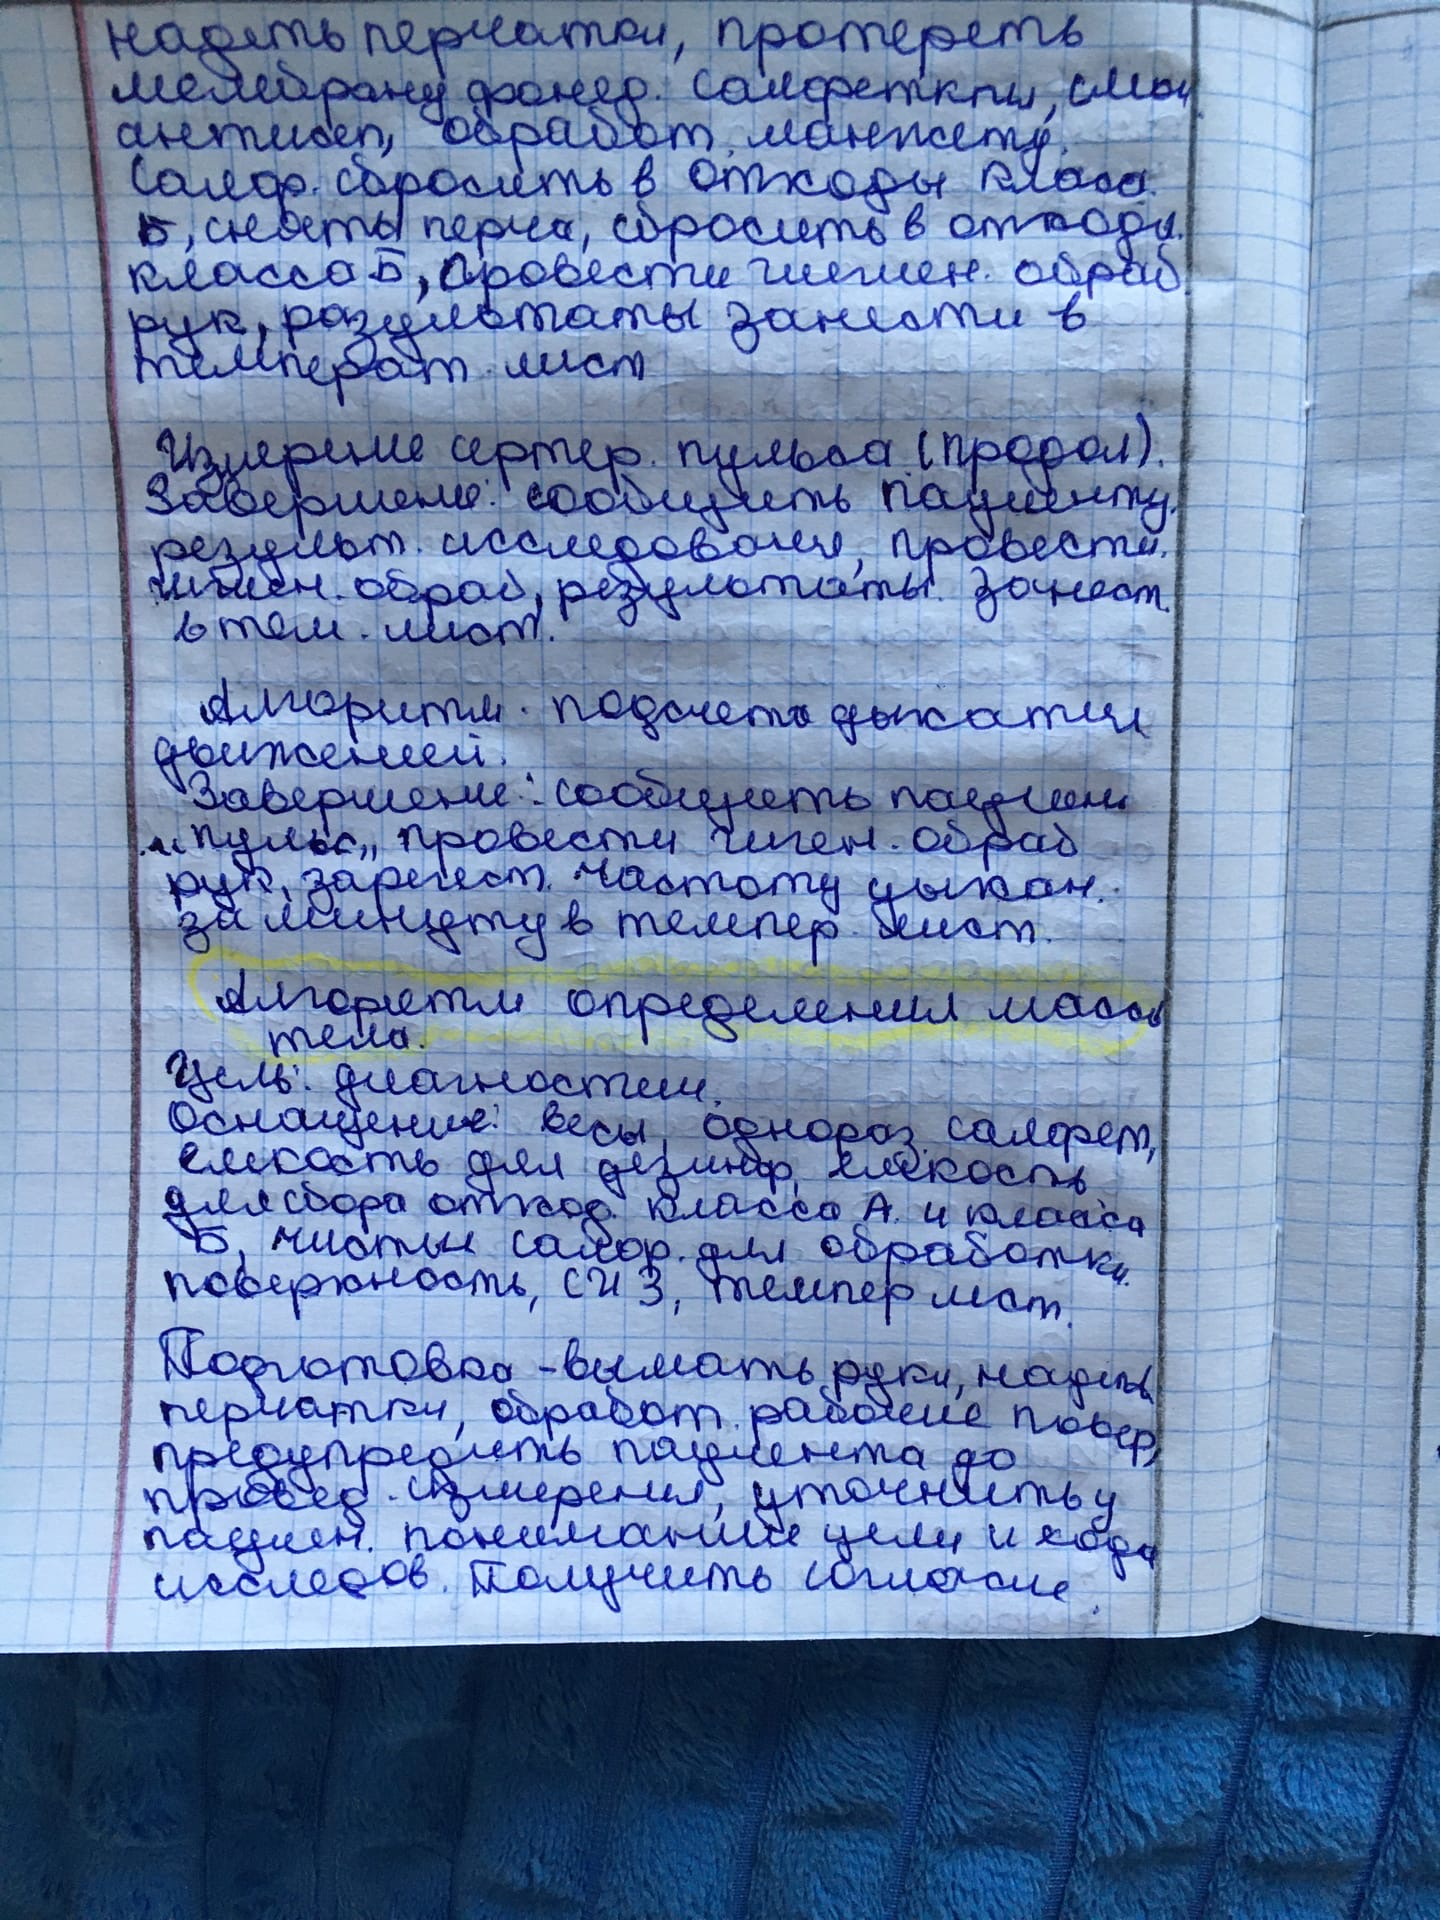 надеть перчатки, протереть
мембрану фонед. салфетками, смоч
антисеп, обработ. манжету.
Салф. сбросить в отходы класса
Б, снять перча, сбросить в отходы
класса Б, провести гигиен. обраб
рук, результаты занести в
температ. лист
Измерение артер. пульса (продол).
Завершение: сообщить пациенту
результ. исследования, провести
гигиен. обраб, результаты занест.
в тем. лист.
Алгоритм подсчета дыхател
движений.
Завершение: сообщить пациен
"пульс", провести гигиен. обраб
рук, зарегест. частоту дыхан.
за минуту в темпер. лист.
Алгоритм определения массы
тела.
Цель: диагностич.
Оснащение: весы, однораз. салфет,
емкость для дезинф, емкость
для сбора отход. класса А. и класса
Б, чистые салф. для обработки
поверхность, СИЗ, темпер лист.
Подготовка - вымать руки, надеть
перчатки, обработ. рабочие повер,
предупредить пациента до
провед. измерения, уточнить у
пациен. понимание цели и хода
исследов. Получить согласие.